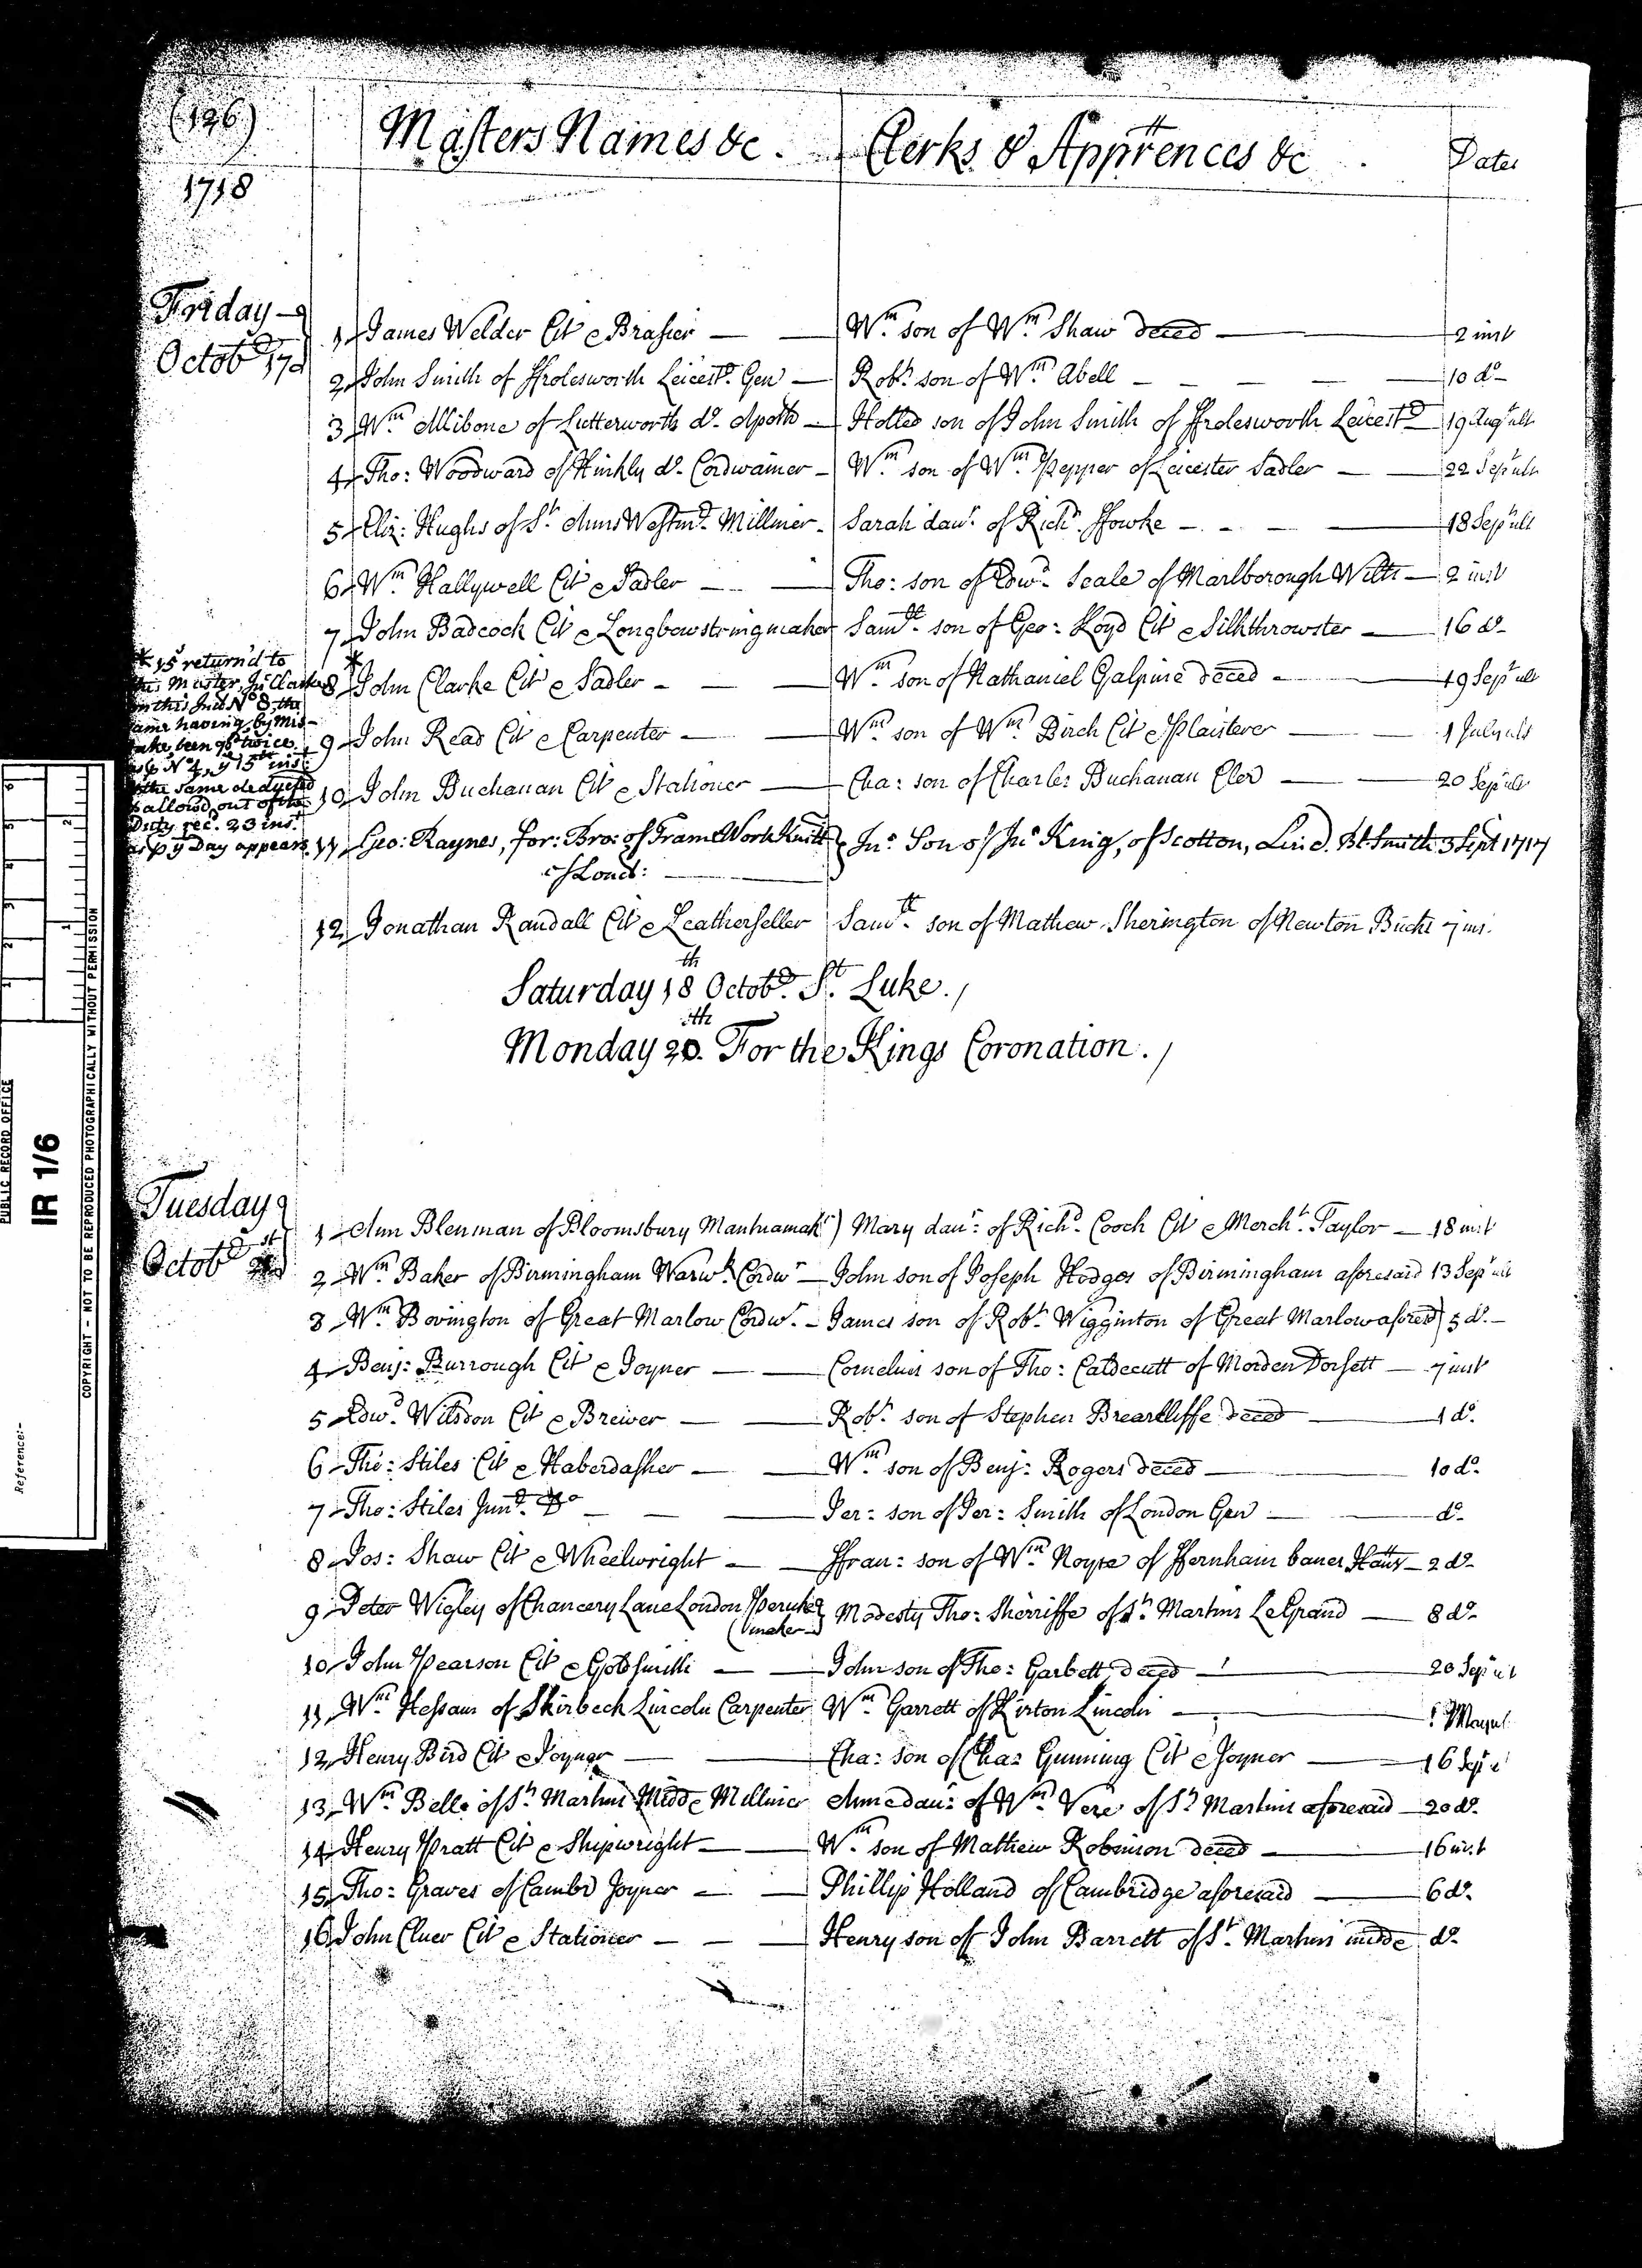 (196)
Masters Names &c. Clerks & Apprtences &c Dates
1718
Friday
Octobr 17
1 James Welder Cit & Brasier — Wm son of Wm Shaw deced — 2 inst
2 John Smith of ffrolesworth Leicestr Gen — Robt son of Wm Abell — 10 do
3 Wm Allibone of Lutterworth do Apoth — Holled son of John Smith of ffrolesworth Leicestr 19 Augt ult
4 Tho: Woodward of Hinkly do Cordwainer — Wm son of Wm Pepper of Leicester Sadler — 22 Sepr ult
5 Eliz: Hughs of St Anns Westmr Milliner Sarah daur of Richd ffowke — 18 Sepr ult
6 Wm Hallywell Cit & Sadler — Tho: son of Edwd Seale of Marlborough Wilts — 2 inst
7 John Badcock Cit & Longbowstringmaker Samll son of Geo: Loyd Cit & Silkthrowster — 16 do
* 8 John Clarke Cit & Sadler — Wm son of Nathaniel Galpine deced — 19 Sepr ult
9 John Read Cit & Carpenter — Wm son of Wm Birch Cit & Plaisterer — 1 July ult
10 John Buchanan Cit & Stationer — Cha: son of Charles Buchanan Cler — 20 Sepr ult
11 Geo: Raynes, for: Bro: of FrameWork Knitt Jno Son of Jno King, of Scotton, Linc. Bl:Smith 3 Sept 1717
of Lond:
12 Jonathan Randall Cit & Leatherseller Samll son of Mathew Sherington of Newton Bucks 7 ins.
* 15s return'd to
this Master, Jn Clarke
in this Jnl No 8, the
same having by mis-
take been pd twice
as p No 4, ye 15th inst
& the same deducted
& allow'd out of the
Duty recd 23 inst
as p yt Day appears
Saturday 18th Octobr St Luke.
Monday 20th For the Kings Coronation.
Tuesday
Octobr 21st
1 Ann Blenman of Bloomsbury Mantuamakr Mary daur of Richd Cooch Cit & Mercht Taylor — 18 inst
2 Wm Baker of Birmingham Warwk Cordwr — John son of Joseph Hodges of Birmingham aforesaid 13 Sepr ult
3 Wm Bovington of Great Marlow Cordwr — James son of Robt Wigginton of Great Marlow aforesd 5 do
4 Benj: Burrough Cit & Joyner — Cornelius son of Tho: Caldecutt of Morden Dorsett — 7 inst
5 Edwd Wilsdon Cit & Brewer — Robt son of Stephen Brearcliffe deced — 1 do
6 Tho: Stiles Cit & Haberdasher — Wm son of Benj: Rogers deced — 10 do
7 Tho: Stiles Junr Do — Jer: son of Jer: Smith of London Gen — do
8 Jos: Shaw Cit & Wheelwright — ffran: son of Wm Noyse of ffernham — 2 do
9 Peter Wigley of Chancery Lane London Peruke Modesty Tho: Sherriffe of St Martins LeGrand — 8 do
maker
10 John Pearson Cit & Goldsmith — John son of Tho: Garbett deced — 20 Sepr ult
11 Wm Hessam of Skirbeck Lincoln Carpenter Wm Garrett of Kirton Lincoln — 1 May ul
12 Henry Bird Cit & Joyner — Cha: son of Cha: Gunning Cit & Joyner — 16 Sept
13 Wm Bell of St Martins Midd Milliner Anne daur of Wm Vere of St Martins aforesaid — 20 do
14 Henry Pratt Cit & Shipwright — Wm son of Mathew Robinson deced — 16 inst
15 Tho: Graves of Cambr Joyner — Phillip Holland of Cambridge aforesaid — 6 do
16 John Cluer Cit & Stationer — Henry son of John Barrett of St Martins midd do
PUBLIC RECORD OFFICE
IR 1/6
COPYRIGHT - NOT TO BE REPRODUCED PHOTOGRAPHICALLY WITHOUT PERMISSION
Reference:-